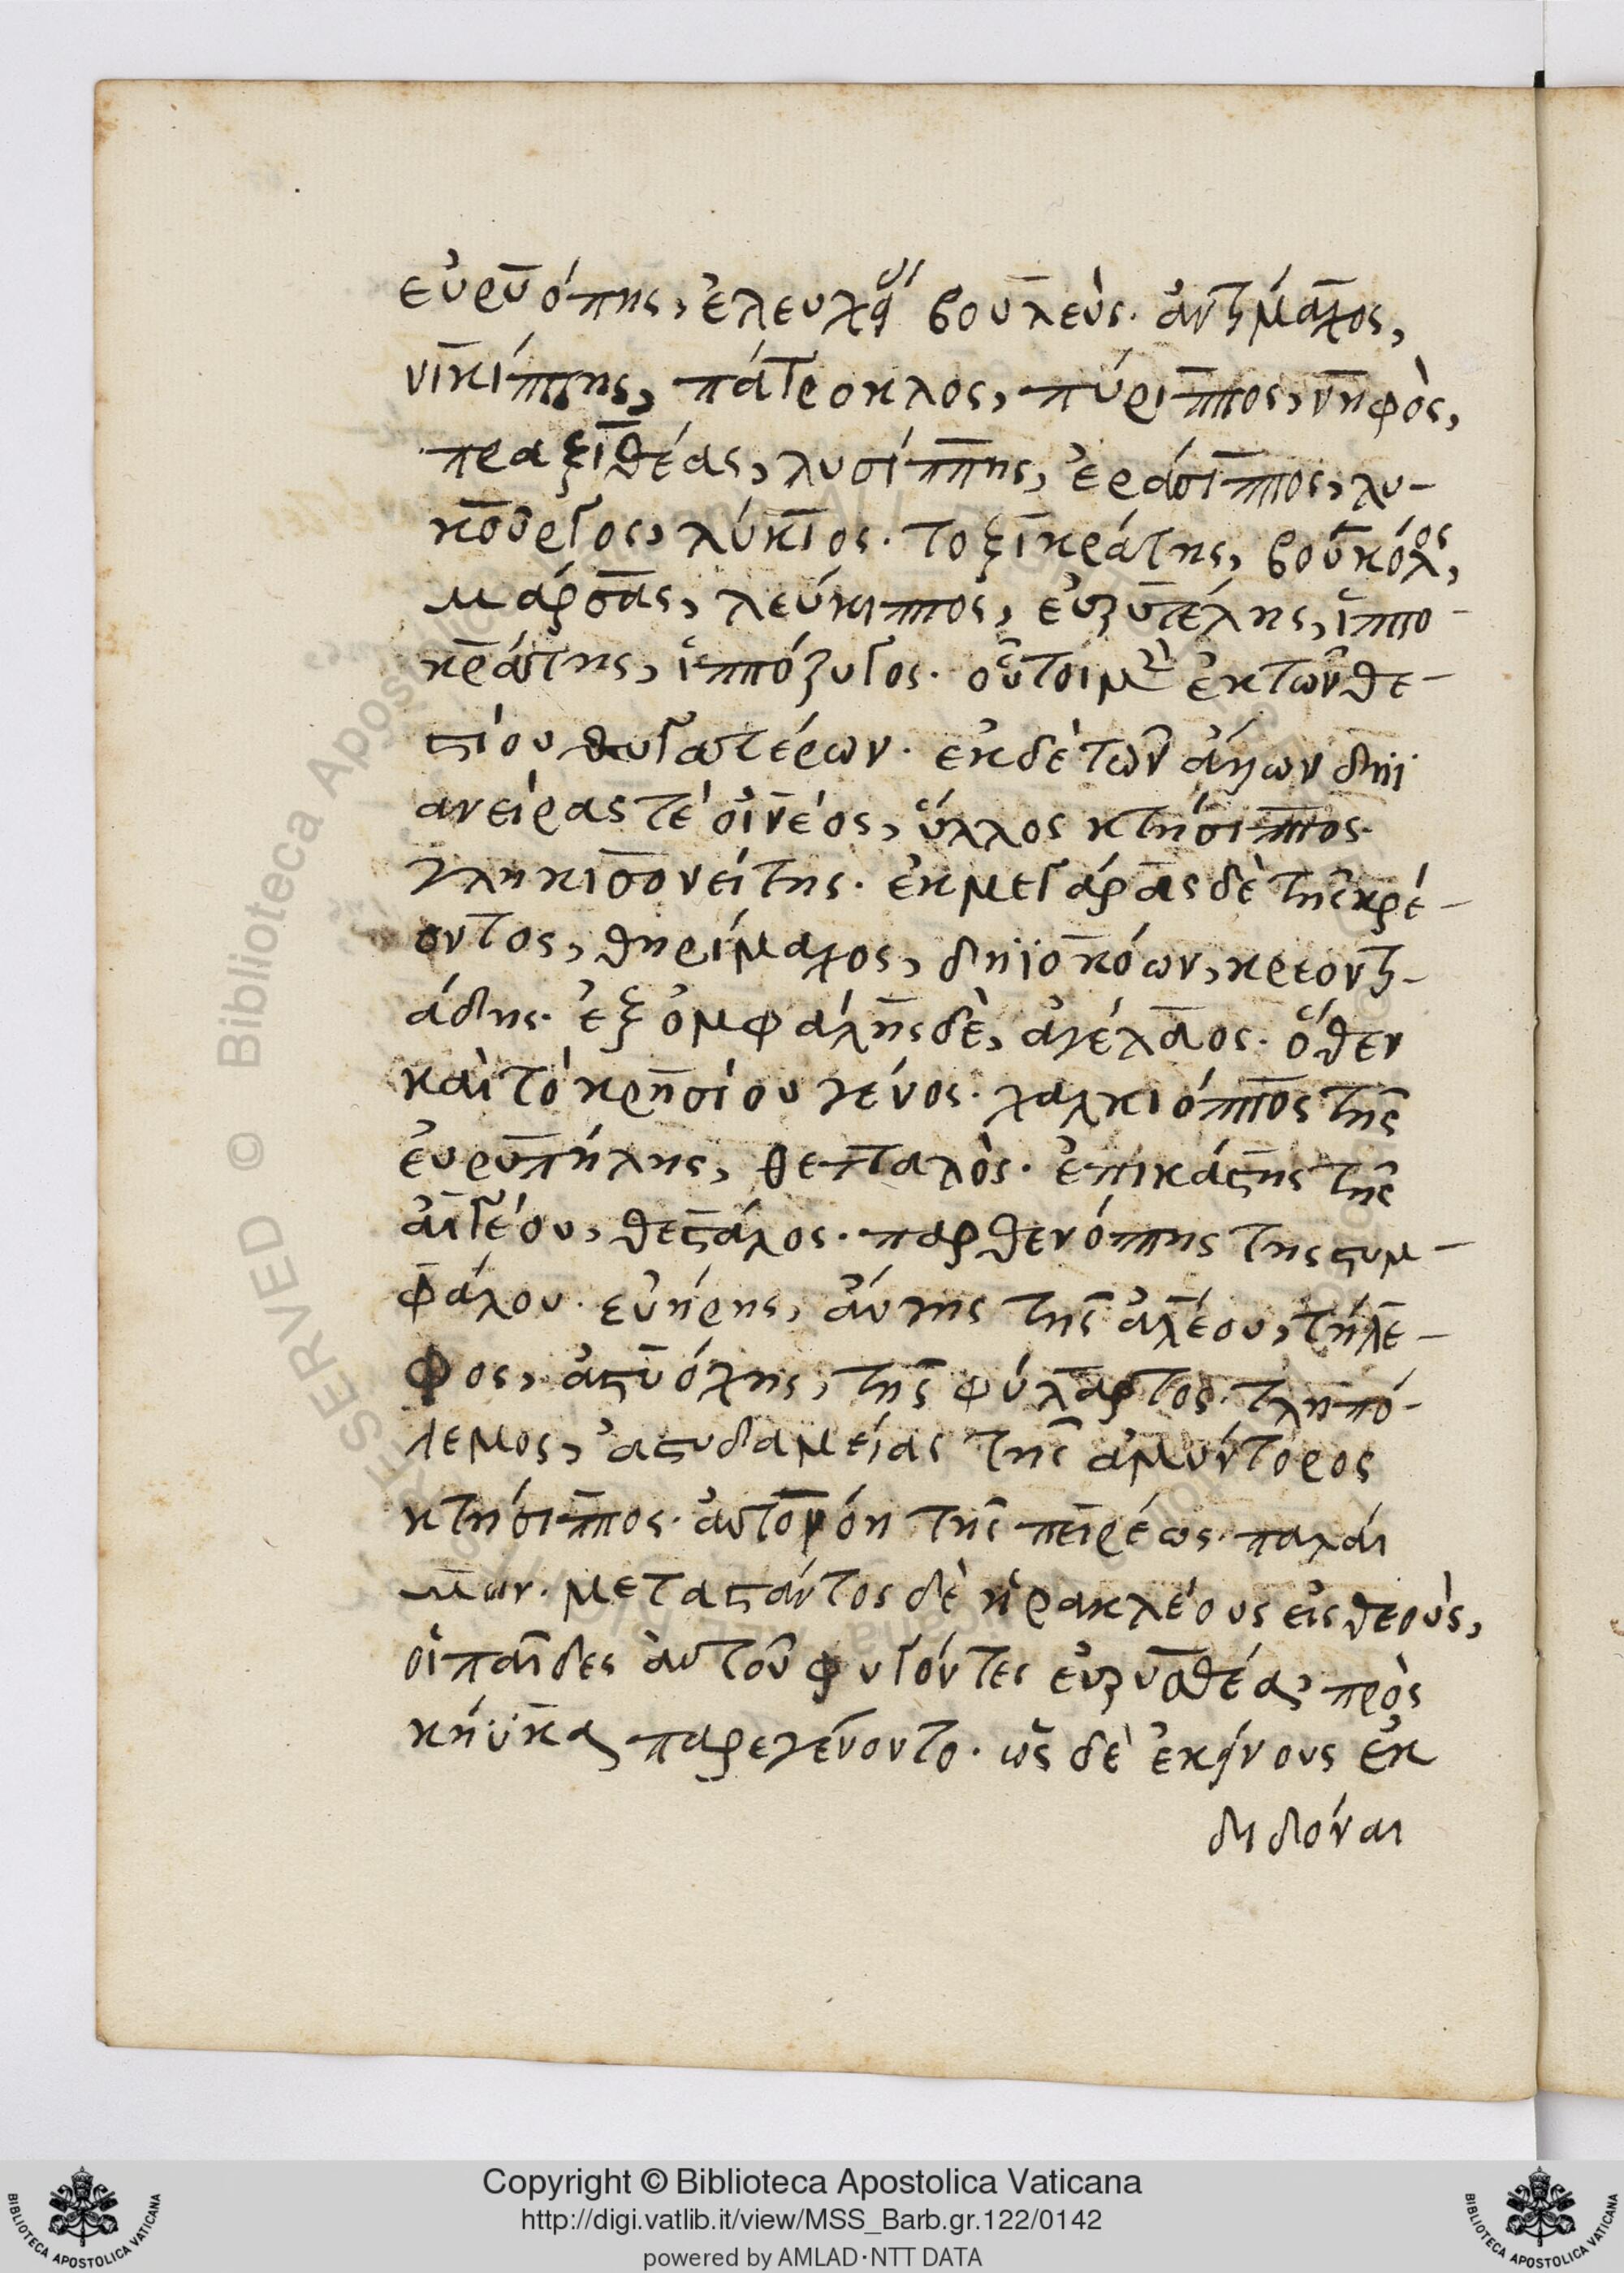 εὐρυόπης, ἐλευχ βουλεὺς. ἀντίμαχος,
νικίππης, πάτροκλος, πύριππος, νηφὸς,
πραξιθέας, λυσίππης, ἐράσιππος, λυ-
κοῦργος, λύκιος. τοξικράτης, βουκόλος,
μάρσας, λεύκιππος, εὐρυτέλης, ἱππο-
κράτης, ἱππόζυγος. οὗτοι μὲν ἐκ τῶν θε-
στίου θυγατέρων. ἐκ δὲ τῶν ἄλλων δηϊ
ανείρας τὲ οἰνέος, ὕλλος κτήσιππος.
γληκισονείτης. ἐκ μεγάρας δὲ τῆς κρέ-
οντος, θηρίμαχος, δηϊοκόων, κρεοντι-
άδης. ἐξ ὀμφάλης δὲ, ἀγέλαος. ὅθεν
καὶ τὸ κρησίου γένος. χαλκιόππος τῆς
εὐρυπήλης, θετταλὸς. ἐπικάστης τῆς
αἰγέου, θεστάλος. παρθενόππης τῆς στυμ-
φάλου. εὐήρης, αὐγης τῆς ἀλέου, τήλε-
φος, ἀστυόχης, τῆς φύλαρτος. τληπό-
λεμος, ἀστυδαμείας τῆς ἀμύντορος
κτήσιππος. αὐτονόη τῆς πειρέως. παλαί
μων. μεταστάντος δὲ ἡρακλέους εἰς θεοὺς,
οἱ παῖδες αὐτοῦ φυγόντες εὐρυσθέα, πρὸς
κήϋκα παρεγένοντο. ὡς δὲ ἐκείνους ἐκ
διδόναι
Copyright © Biblioteca Apostolica Vaticana
http://digi.vatlib.it/view/MSS_Barb.gr.122/0142
powered by AMLAD·NTT DATA
BIBLIOTECA APOSTOLICA VATICANA
BIBLIOTECA APOSTOLICA VATICANA